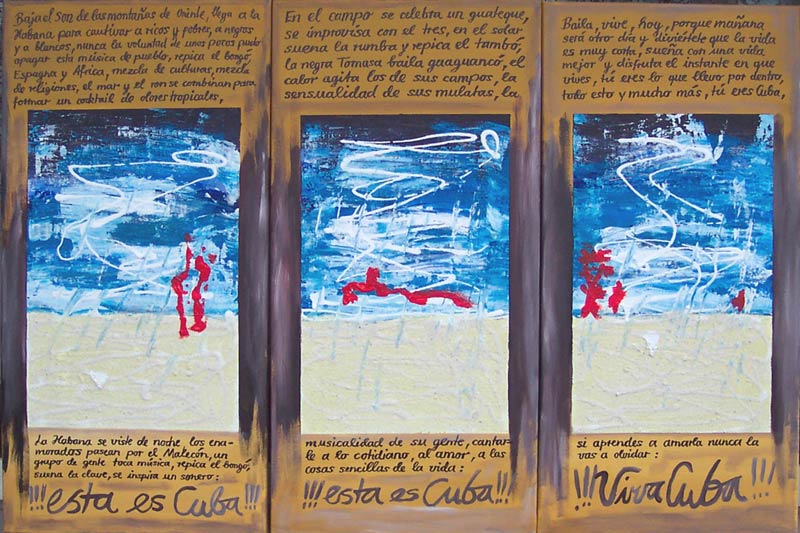 Baja el Son de las montañas de Oriente, llega a la
Habana para cautivar a ricos y pobres, a negros
y a blancos, nunca la voluntad de unos pocos pudo
apagar esta música de pueblo, repica el bongó,
Espagna y África, mezcla de culturas, mezcla
de religiones, el mar y el ron se combinan para
formar un cocktail de olores tropicales,
La Habana se viste de noche, los ena-
morados pasean por el Malecón, un
grupo de gente toca música, repica el bongó,
suena la clave, se inspira un sonero:
!!!esta es Cuba!!!
En el campo se celebra un guateque,
se improvisa con el tres, en el solar
suena la rumba y repica el tambó,
la negra Tomasa baila gaaguancó, el
calor agita los de sus campos, la
sensualidad de sus mulatas, la
musicalidad de su gente, cantar-
le a lo cotidiano, al amor, a las
cosas sencillas de la vida:
!!!esta es Cuba!!!
Baila, vive, hoy, porque mañana
será otro día y diviértete que la vida
es muy corta, sueña con una vida
mejor y disfruta el instante en que
vives, tú eres lo que llevo por dentro,
todo esto y mucho más, tú eres Cuba,
si aprendes a amarla nunca la
vas a olvidar:
!!!Viva Cuba!!!